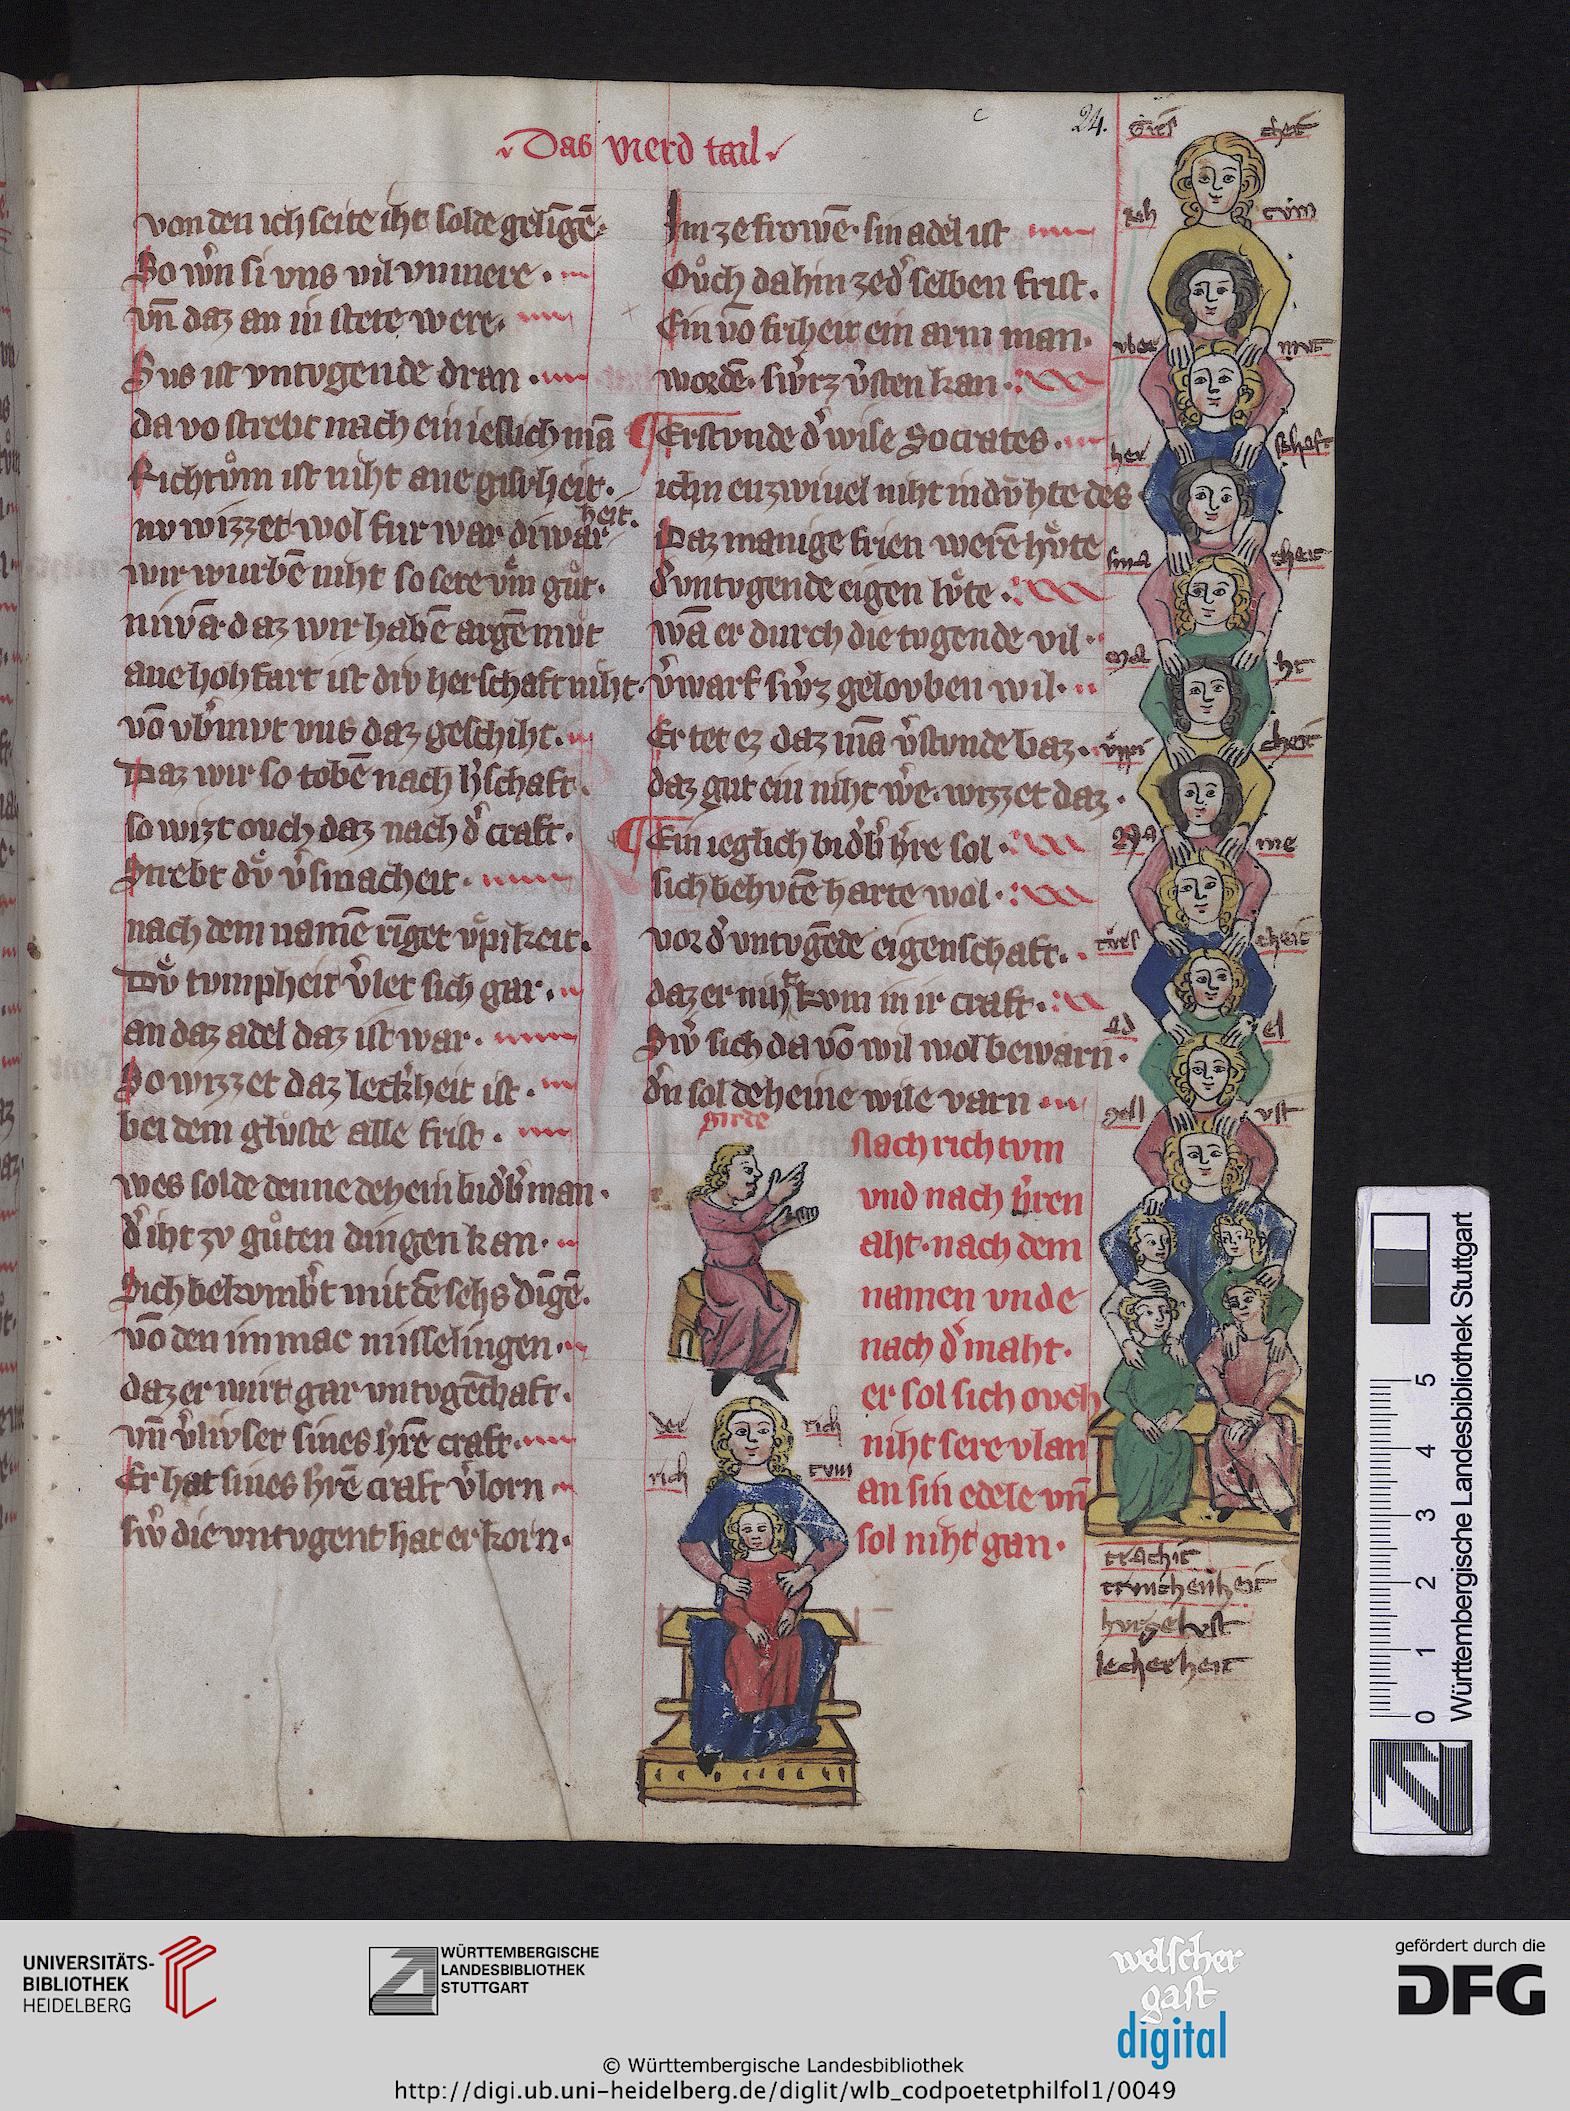 c 24.
Das vierd tail
von den ich seite iht solde geli̅ge̅.
So wn̾ si vns vil vnmere.
vn̅ daz an in stete were.
Sus ist vntvgende dran.
da vo strebt nach ein ieslich ma̅
Richtům ist niht ane girheit.
nv wizzet wol fur war di warheit.
wir wurbe̅ niht so sere vm̾ gůt.
niwa̅ daz wir habe̅ arge̅ mvt
ane hohfart ist div herschaft niht.
vo̅ vb̾mvt vns daz geschiht.
Daz wir so tobe̅ nach h̾schaft.
so wizt ovch daz nach d̾ craft.
Strebt dv̊ v̾smacheit.
nach dem name̅ ri̅get vͤpikeit.
Dvͤ tvmpheit v̾let sich gar.
an daz adel daz ist war.
So wizzet daz leck̾heit ist.
bei dem glůste alle frist.
wes solde denne dehein bid̾b̾ man.
d̾ iht zv gůten dingen kan.
Sich bekvmb̾t mit de̅ sehs di̅ge̅.
vo̅ den im mac misselingen.
daz er wirt gar vntvge̅thaft.
vn̅ v̾livset sines h̾re̅ craft.
Er hat sines h̾re̅ craft v̾lorn
sw̾ die vntvgent hat erkorn.
Im ze frowe̅. sin adel ist
Oůch da hin zed̾ selben frist.
Ein vo̅ friheit ein arm man.
worde̅. sw̾rz v̾sten kan.
Erstvnde d̾ wise Socrates.
ichn enzwiuel niht in dvͤhte des
Daz manige frien were̅ hvͤte
d̾ vntvgende eigen lvͤte.
wa̅ er durch die tvgende vil.
v̾warf sw̾z gelovben wil.
Er tet ez daz ma̅ v̾stvnde baz.
daz gut ein niht we̾. wizzet daz.
Ein ieglich bid̾b̾ h̾re sol.
sich behvte̅ harte wol.
vor d̾ vntvge̅de eigenschaft.
daz er niht kvm in ir craft.
Sw̾ sich da vo̅ wil wol bewarn.
d̾n sol deheine wile varn
girde
Nach richtvm
vnd nach h̾ren
aht. nach dem
namen vnde
nach d̾ maht.
er sol sich ovch
niht sere vlan
an sin edele vn̅
sol niht gan.
der rich
rich tvm
Girs cheit
rich tvm
vber mvt
her schaft
sma cheit
ma ht
vͤppi cheit
na me
tors cheit
ad el
gell vst
trachit
trvnchenheit
hvrgelvst
lecherheit
0 1 2 3 5
Württembergische Landesbibliothek Stuttgart
UNIVERSITÄTS-
BIBLIOTHEK
HEIDELBERG
WÜRTTEMBERGISCHE
LANDESBIBLIOTHEK
STUTTGART
welscher
gast
digital
gefördert durch die
DFG
© Württembergische Landesbibliothek
http://digi.ub.uni-heidelberg.de/diglit/wlb_codpoetetphilfol1/0049